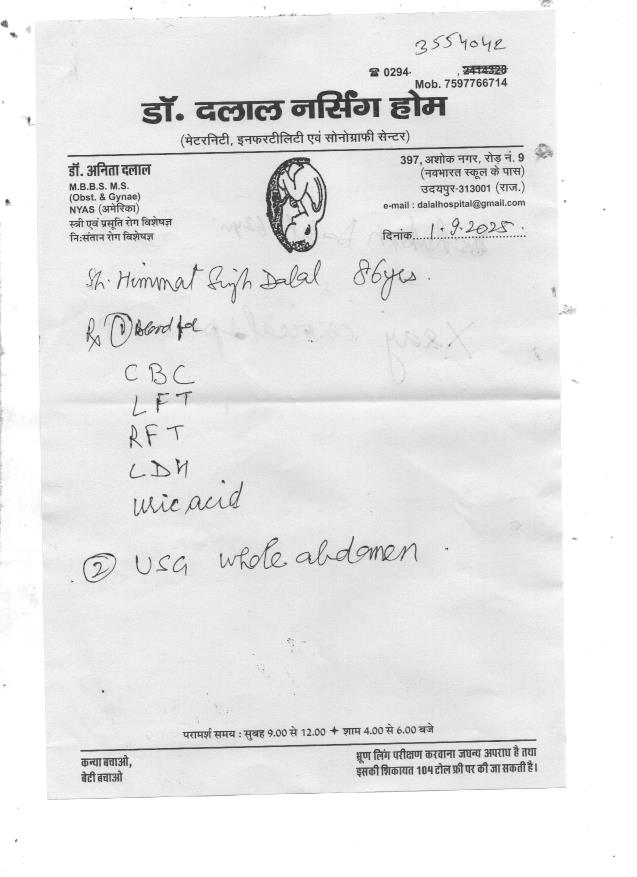 3554042
☎ 0294- , 2414328
Mob. 7597766714
डॉ. दलाल नर्सिंग होम
(मेटरनिटी, इनफरटीलिटी एवं सोनोग्राफी सेन्टर)
डॉ. अनिता दलाल
M.B.B.S. M.S.
(Obst. & Gynae)
NYAS (अमेरिका)
स्त्री एवं प्रसूति रोग विशेषज्ञ
नि:संतान रोग विशेषज्ञ
397, अशोक नगर, रोड़ नं. 9
(नवभारत स्कूल के पास)
उदयपुर-313001 (राज.)
e-mail : dalalhospital@gmail.com
दिनांक 1.9.2025
Sh. Himmat Singh Dalal 86yrs.
Rx ① Blood for
CBC
LFT
RFT
LDH
Uric acid
② USG whole abdomen.
परामर्श समय : सुबह 9.00 से 12.00 ✦ शाम 4.00 से 6.00 बजे
कन्या बचाओ,
बेटी बचाओ
भ्रूण लिंग परीक्षण करवाना जघन्य अपराध है तथा
इसकी शिकायत 104 टोल फ्री पर की जा सकती है।